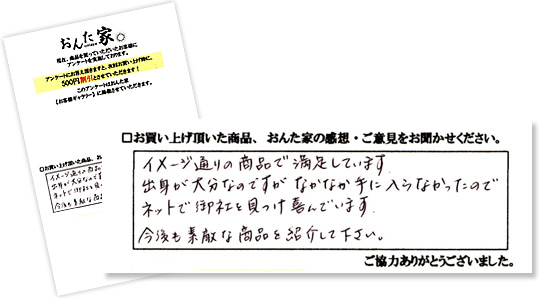 おんた家
現在、商品を買っていただいたお客様に
アンケートを実施しております。
アンケートにお答え頂きますと、次回お買い上げ時に、
500円割引とさせていただきます！
このアンケートはおんた家
【お客様ギャラリー】に掲載させていただきます。
□お買い上げ頂いた商品、お
イメージ通りの商
出身が大分なのです
ネットで御社を見
今後も素敵な商品
□お買い上げ頂いた商品、おんた家の感想・ご意見をお聞かせください。
イメージ通りの商品で満足しています。
出身が大分なのですが なかなか手に入らなかったので
ネットで御社を見つけ喜んでいます。
今後も素敵な商品を紹介して下さい。
ご協力ありがとうございました。